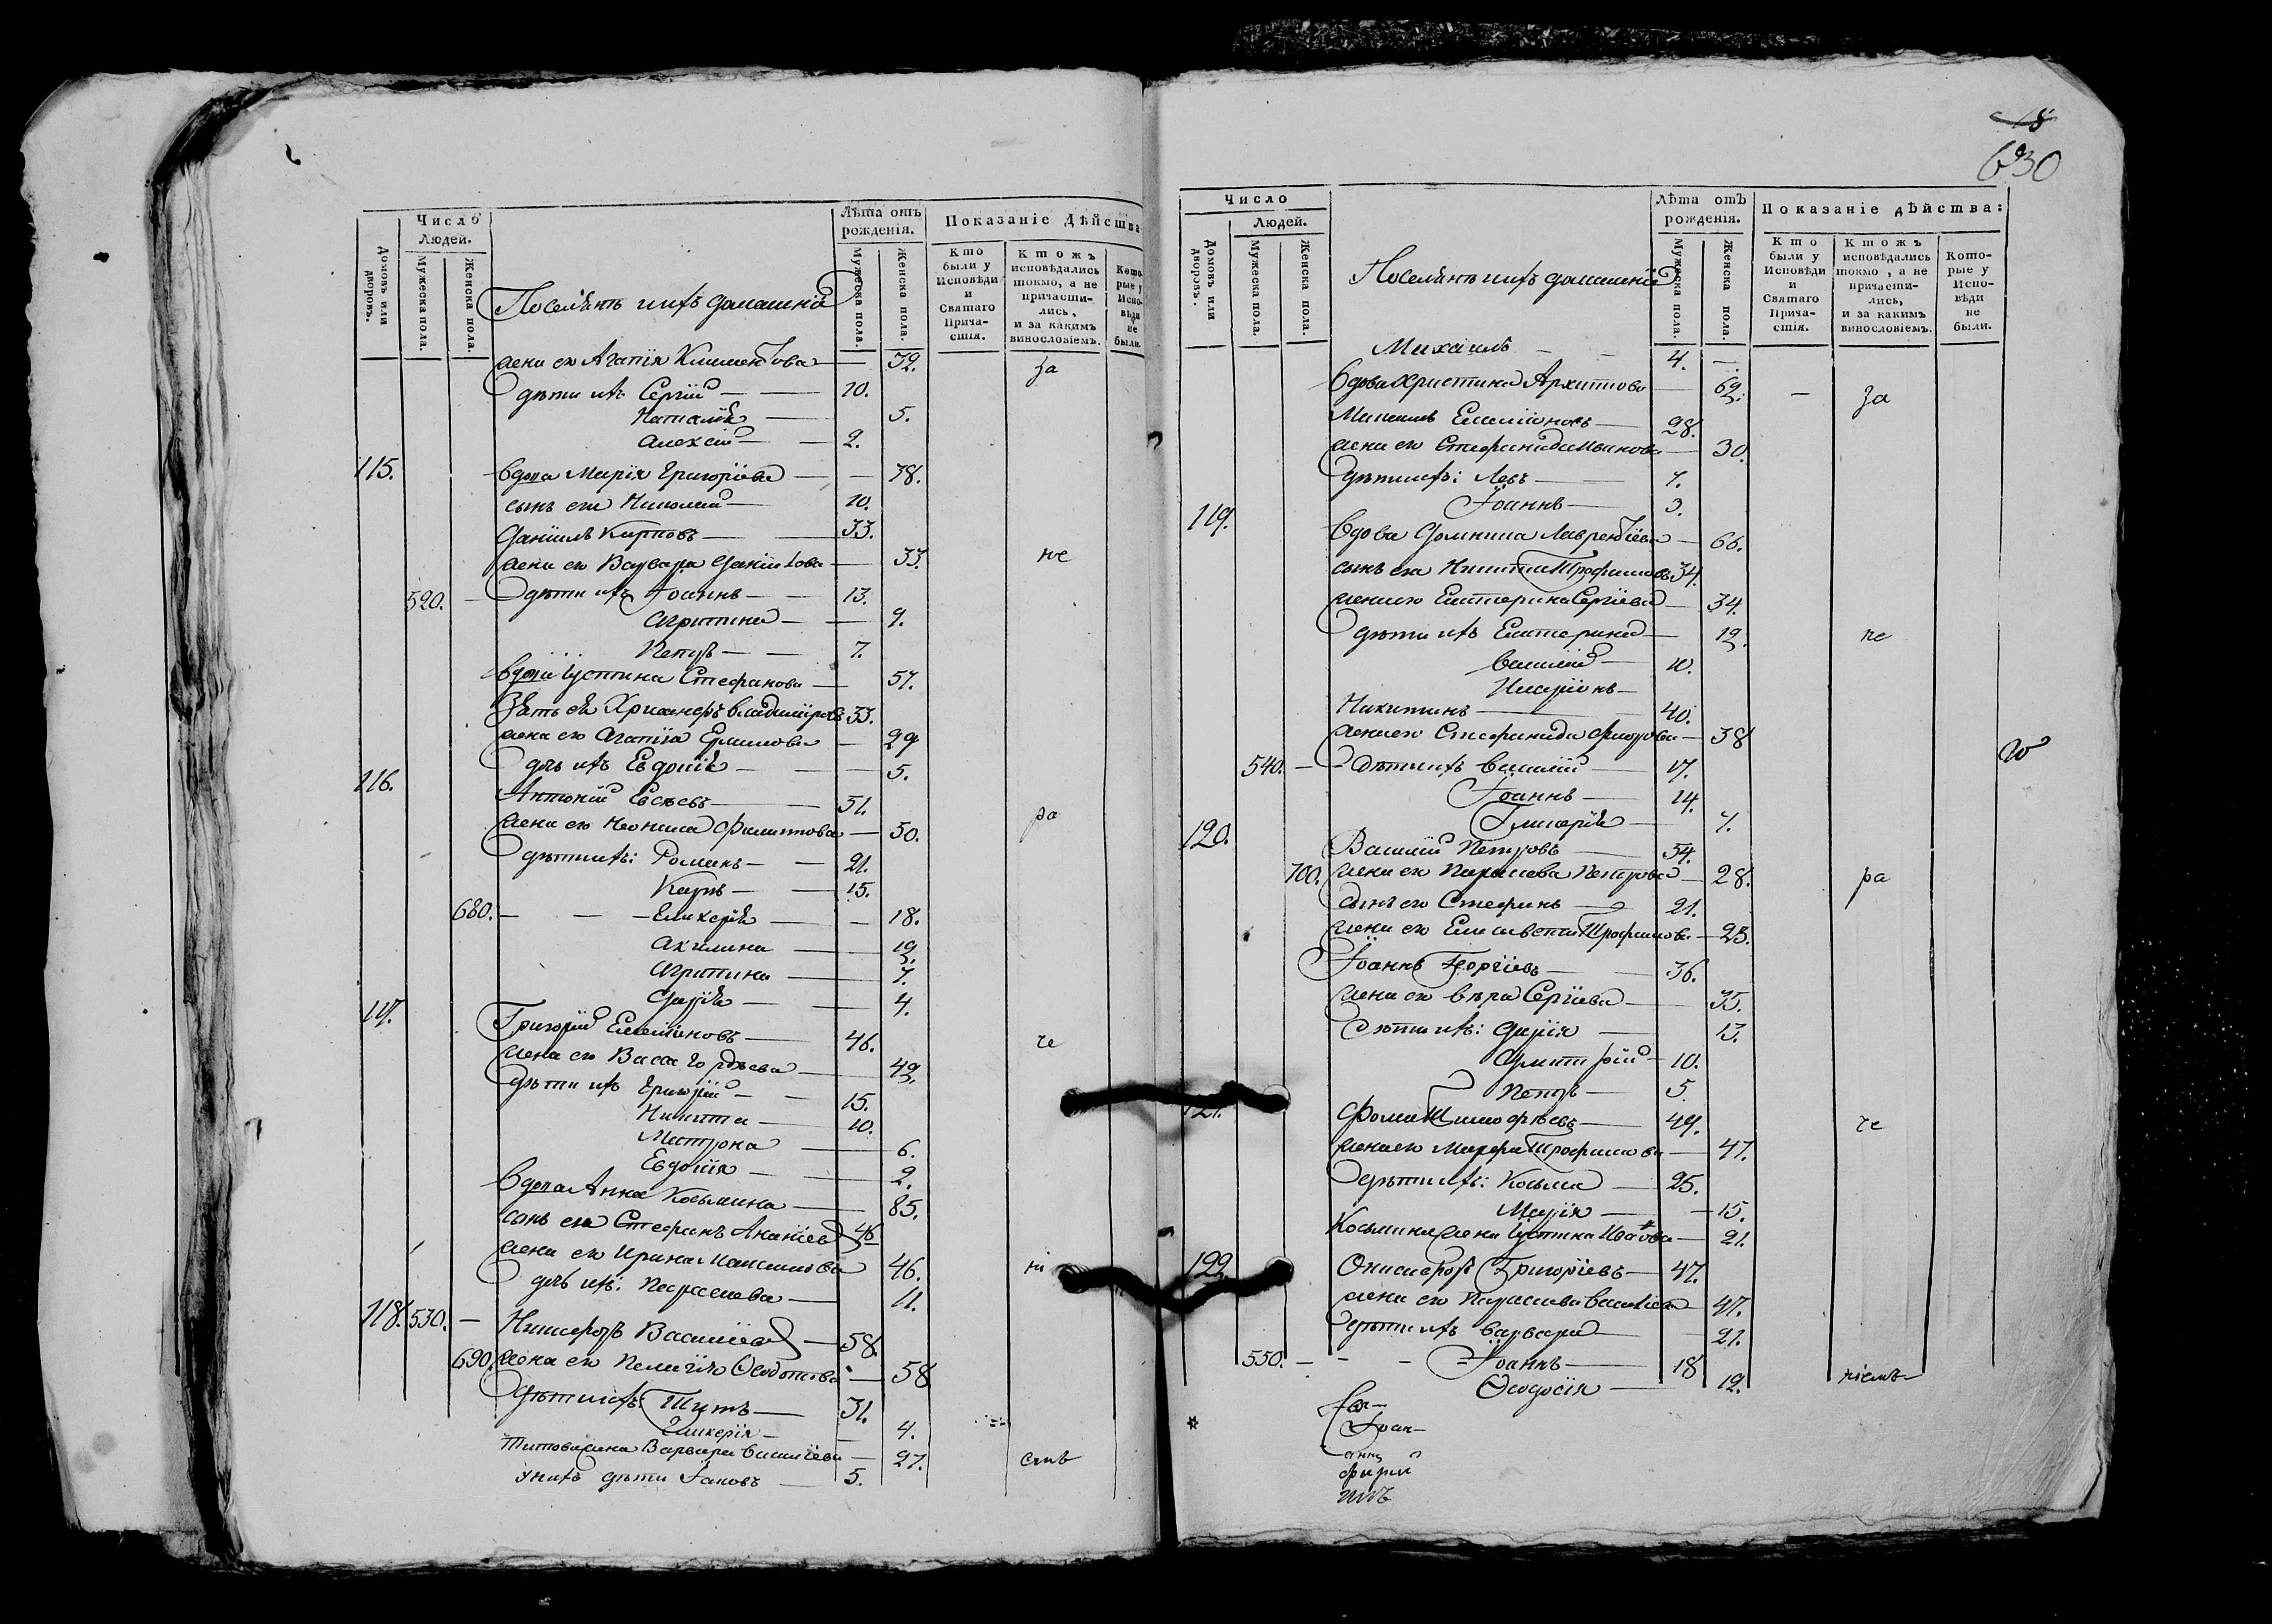 Число
Людей.
Домовъ или дворовъ.
Мужеска пола.
Женска пола.
Поселянъ ихъ домашнiй
Лѣта отъ рожденiя.
Мужеска пола.
Женска пола.
Показанiе Дѣйства
Кто были у Исповѣди и Святаго Прича-стiя.
Ктожъ исповѣдались токмо, а не причасти-лись, и за какимъ винословiемъ.
Кото-рые у Испо-вѣди не были.
жена его Агапiя Климентова — 32. за
дѣти ихъ Сергiй — 10.
Наталiя — 5.
Алексiй — 2.
115. вдова Марiя Григорiева — 38.
сынъ ея Николай — 10.
Данiилъ Карповъ — 33.
жена его Варвара Данiилова — 33. не
520. — дѣти ихъ Iоаннъ — 13.
Агрипина — 9.
Петръ — 7.
вдова Iустина Стефанова — 57.
Зять ея Владимiровъ 33.
жена его Агапiя — 29
дчь ихъ Евдокiя — 5.
116. Антонiй Евсѣевъ — 51.
жена его Неонила Филиппова — 50. ра
дѣти ихъ: Романъ — 21.
Карпъ — 15.
680. — Гликерiя — 18.
Акилина — 12.
Агрипина — 7.
Дарiя — 4.
117. Григорiй Емелiановъ — 46. че
жена его Васса — 42.
дѣти ихъ Григорiй — 15.
Никита — 10.
Матрона — 6.
Евдокiя — 2.
вдова Анна Косьмина — 85.
сынъ ея Стефанъ Ананiевъ 46
жена его Ирина Максимова 46. нi
дчь ихъ: Параскева — 11.
118. 530. — Никифоръ Василiевъ — 58.
690. жена его Пелагiя Ѳеодотова — 58
дѣти ихъ: Титъ — 31.
Гликерiя — 4.
Титова жена Варвара Василiева — 27. емъ
у нихъ дѣти Iаковъ — 5.
18
630
Число
Людей.
Домовъ или дворовъ.
Мужеска пола.
Женска пола.
Поселянъ ихъ домашнiй
Лѣта отъ рожденiя.
Мужеска пола.
Женска пола.
Показанiе дѣйства:
Кто были у Исповѣди и Святаго Прича-стiя.
Ктожъ исповѣдались токмо, а не причасти-лись, и за какимъ винословiемъ.
Кото-рые у Испо-вѣди не были.
Михаилъ — 4. —
вдова Христина Архипова — 62. — за
Михаилъ Емелiановъ — 28.
жена его Стефанида Иванова — 30.
дѣти ихъ: Левъ — 7.
Iоаннъ — 3.
119. вдова Домника Лаврентiева — 66.
сынъ ея Никита Трофимовъ 34.
жена его Екатерина Сергiева — 34.
дѣти ихъ Екатерина — 12. не
Василiй — 10.
Иларiонъ —
Никитинъ — 40.
жена его Стефанида Фiодорова — 38
540. — дѣти ихъ Василiй — 17.
Iоаннъ — 14.
Гликерiя — 7.
120. Василiй Петровъ — 54.
700. жена его Параскева Петрова — 28. ра
сынъ его Стефанъ — 21.
жена его Елисавета Трофимова — 23.
Iоаннъ Георгiевъ — 36.
жена его Вѣра Сергiева — 35.
дѣти ихъ: Дарiя — 13.
Димитрiй — 10.
Петръ — 5.
121. Фома Тимофѣевъ — 49. че
жена его Марфа Трофимова — 47.
дѣти ихъ: Косьма — 25.
Марiя — 15.
Косьмина жена Iустина Иванова — 21.
122. Онисифоръ Григорiевъ — 47.
жена его Параскева Василiева — 47.
дѣти ихъ Варвара — 21.
550. — Iоаннъ — 18
Ѳеодосiя — 12. нiемъ